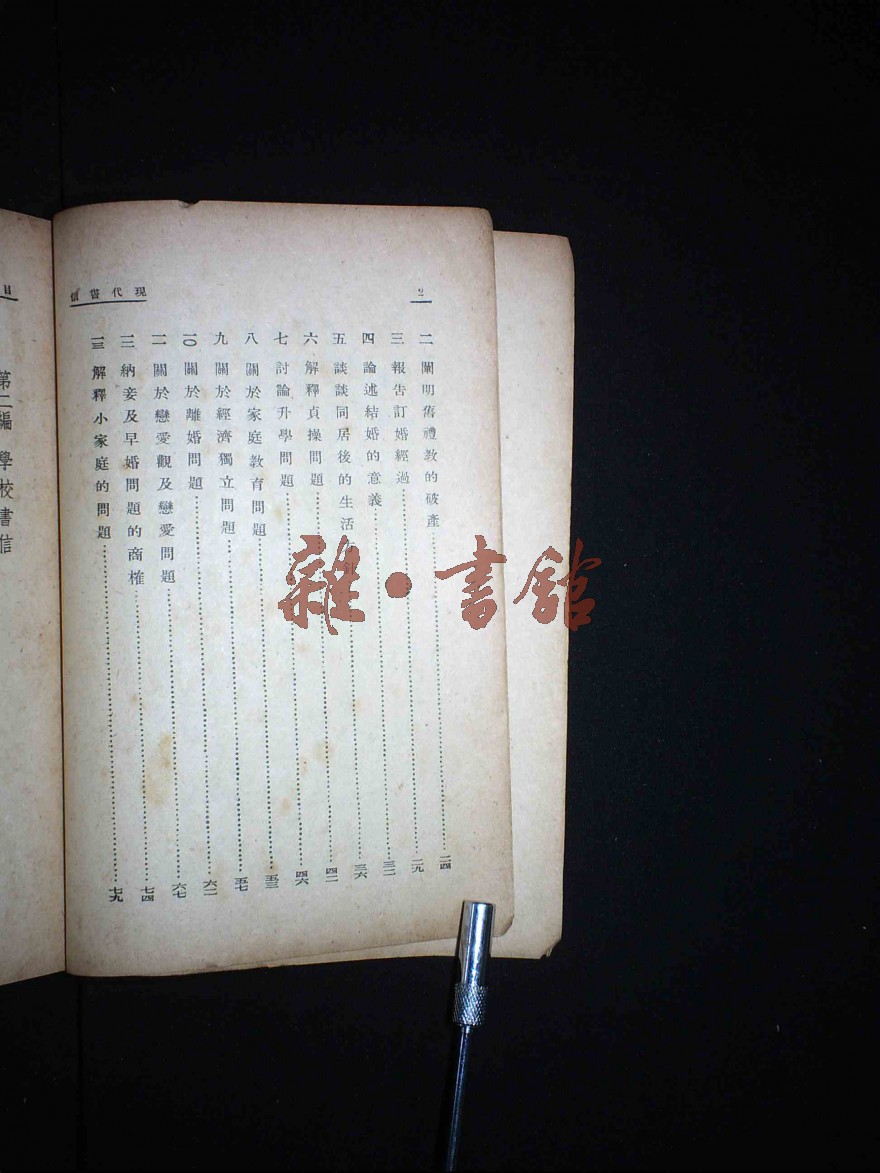 2
現代書信
二 闡明舊禮教的破產……二四
三 報告訂婚經過……二九
四 論述結婚的意義……三二
五 談談同居後的生活……三六
六 解釋貞操問題……四二
七 討論升學問題……四六
八 關於家庭教育問題……五三
九 關於經濟獨立問題……五七
一〇 關於離婚問題……六二
一一 關於戀愛觀及戀愛問題……六七
一二 納妾及早婚問題的商榷……七四
一三 解釋小家庭的問題……七九
目
第二編 學校書信
雜·書館